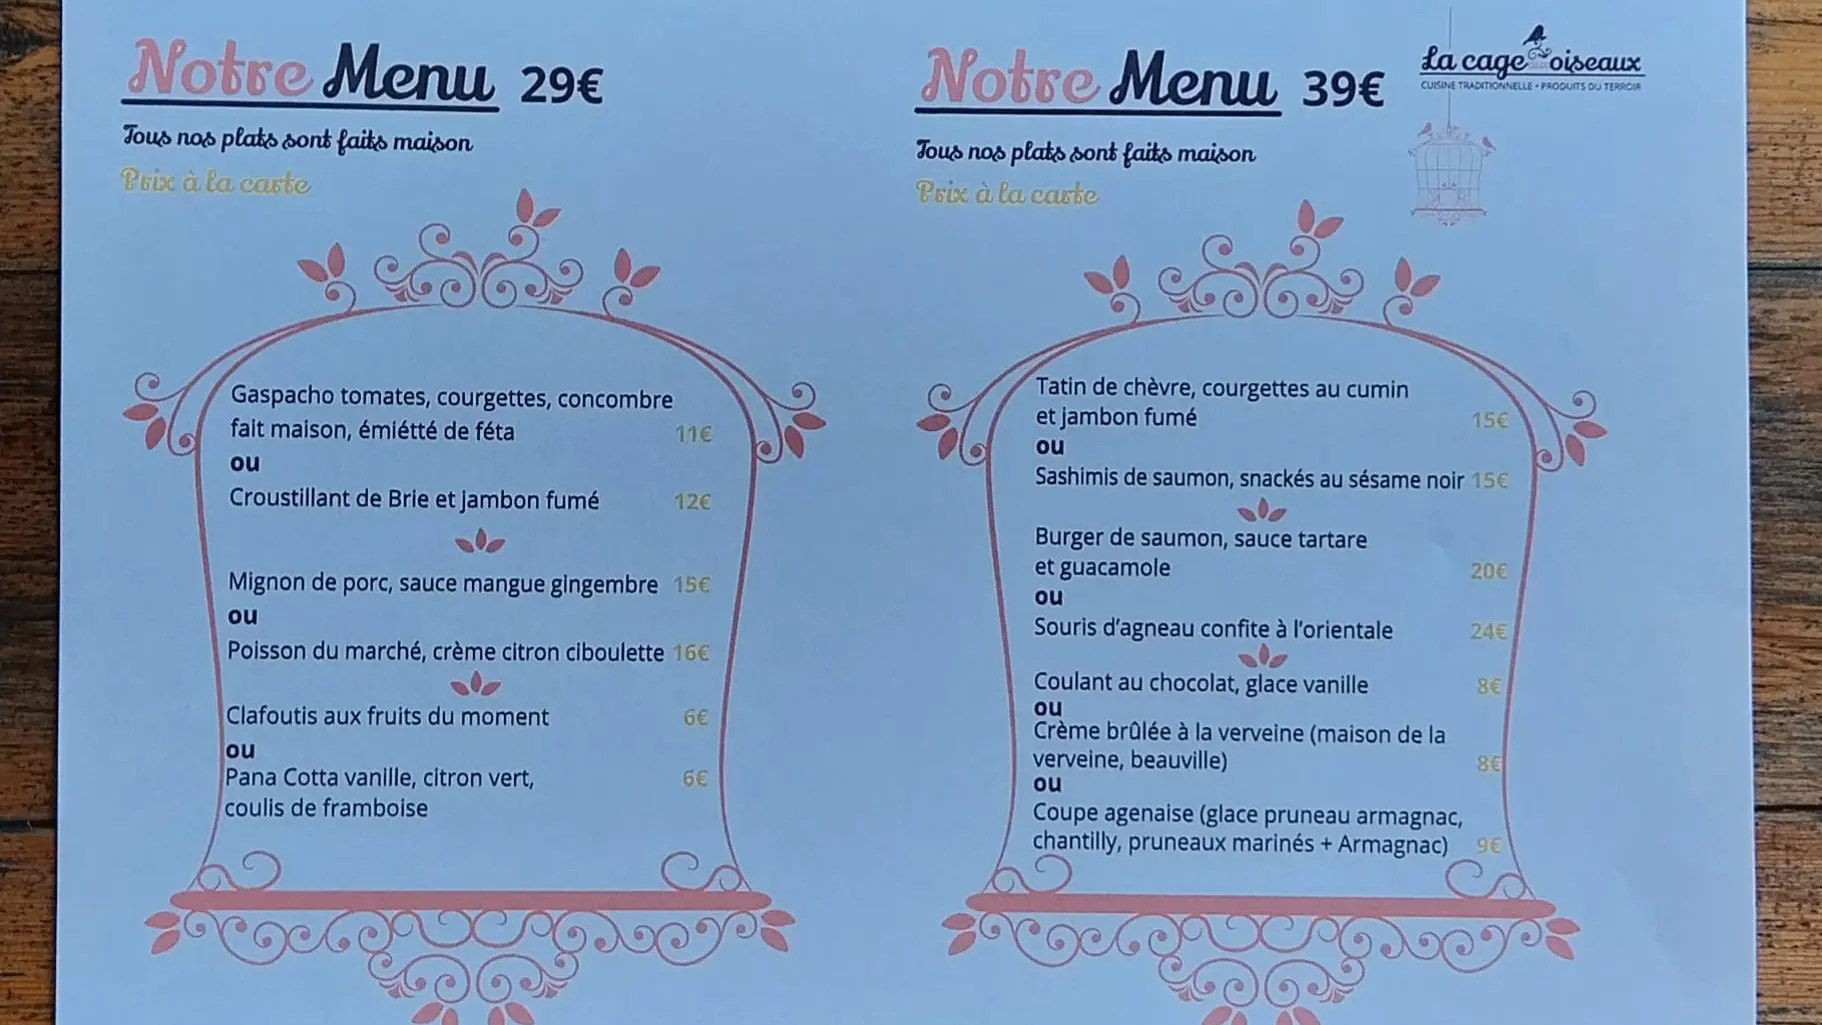 Notre Menu 29€
Tous nos plats sont faits maison
Prix à la carte
Gaspacho tomates, courgettes, concombre
fait maison, émiétté de féta 11€
ou
Croustillant de Brie et jambon fumé 12€
Mignon de porc, sauce mangue gingembre 15€
ou
Poisson du marché, crème citron ciboulette 16€
Clafoutis aux fruits du moment 6€
ou
Pana Cotta vanille, citron vert, 6€
coulis de framboise
Notre Menu 39€
Tous nos plats sont faits maison
Prix à la carte
La cage aux oiseaux
CUISINE TRADITIONNELLE • PRODUITS DU TERROIR
Tatin de chèvre, courgettes au cumin
et jambon fumé 15€
ou
Sashimis de saumon, snackés au sésame noir 15€
Burger de saumon, sauce tartare
et guacamole 20€
ou
Souris d'agneau confite à l'orientale 24€
Coulant au chocolat, glace vanille 8€
ou
Crème brûlée à la verveine (maison de la
verveine, beauville) 8€
ou
Coupe agenaise (glace pruneau armagnac,
chantilly, pruneaux marinés + Armagnac) 9€